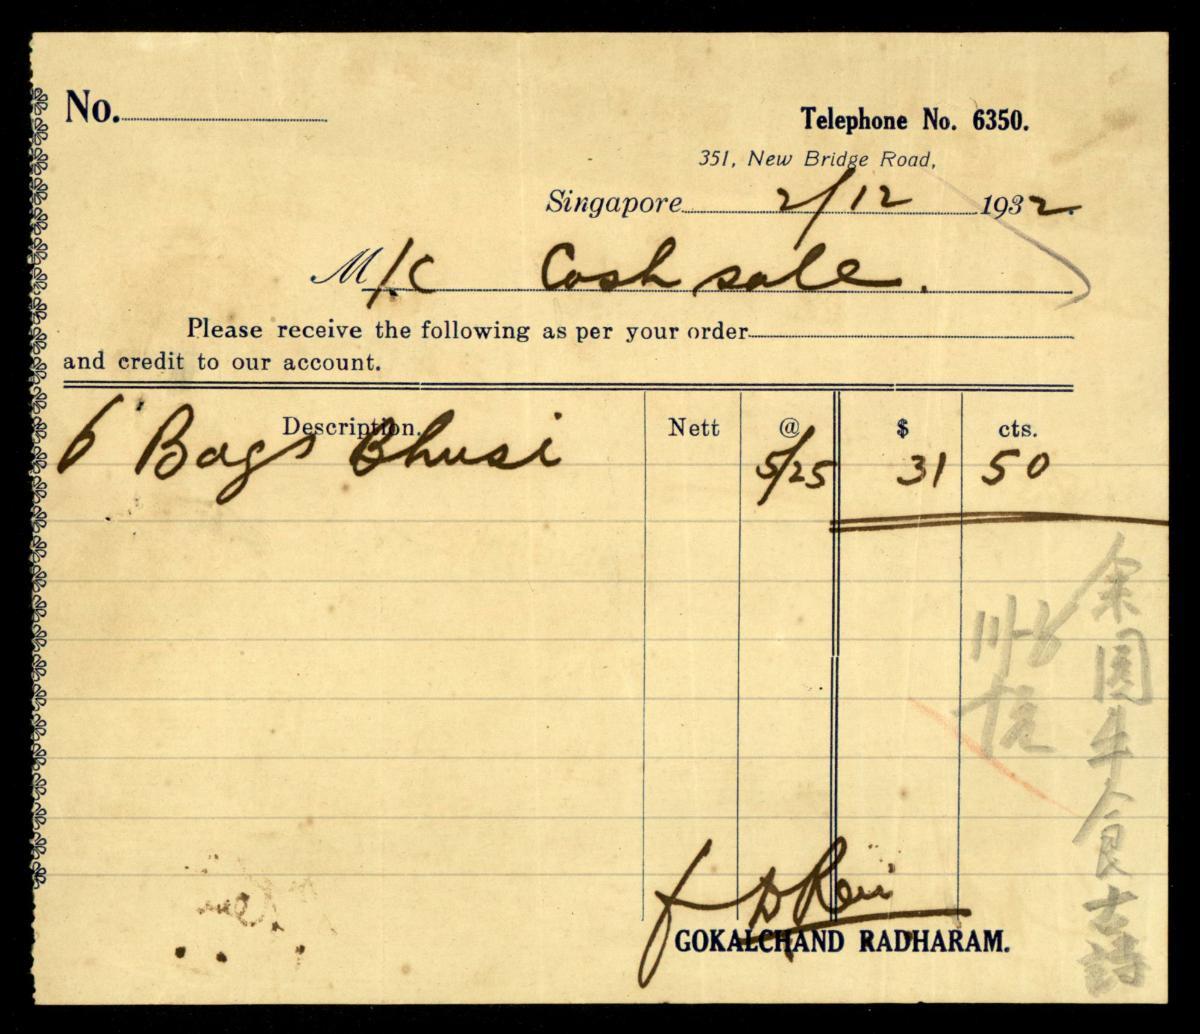 No.
Telephone No. 6350.
351, New Bridge Road,
Singapore 2/12 1932.
M/C Cash sale.
Please receive the following as per your order
and credit to our account.
Description. Nett @ $ cts.
6 Bags Bhusi 5/25 31 50
余園牛食
GOKALCHAND RADHARAM.